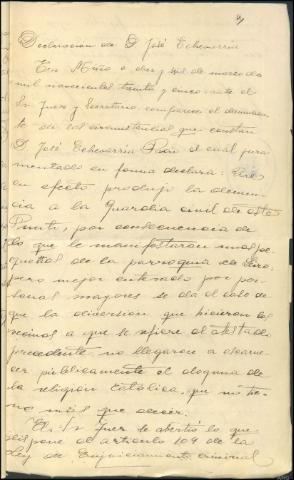 Declaracion de D. José Echevarria
En Miño a diez y seis de marzo de
mil novecientos treinta y cinco ante el
Sr. Juez y Secretario, comparece el denunciante
de las circunstancias que constan
D. José Echevarria el cual jura
mentado en forma declara: Que
en efecto produjo la denun
cia a la Guardia civil de este
Puesto, por consecuencia de
lo que le manifestaron unos pe
queños de la parroquia de
pero mejor enterado por per
sonas mayores se da el caso de
que la diversion que hicieron los
vecinos a que se refiere el atestado
precedente no llegaron a
cer publicamente el dogma de
la religion Católica, que no tie
ne más que decir.
El Sr. Juez le abertió lo que
dispone el articulo 109 de la
Ley de Enjuiciamiento criminal